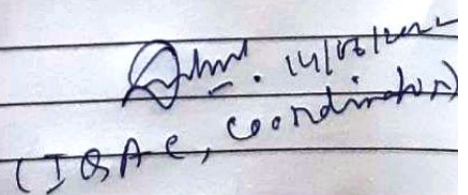 14/06/2022
(IQAC, Coordinator)